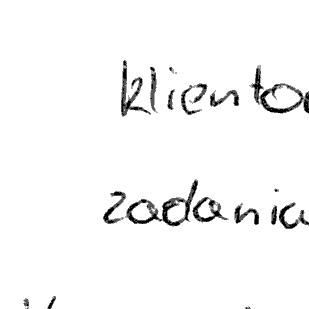 kliento
zadania